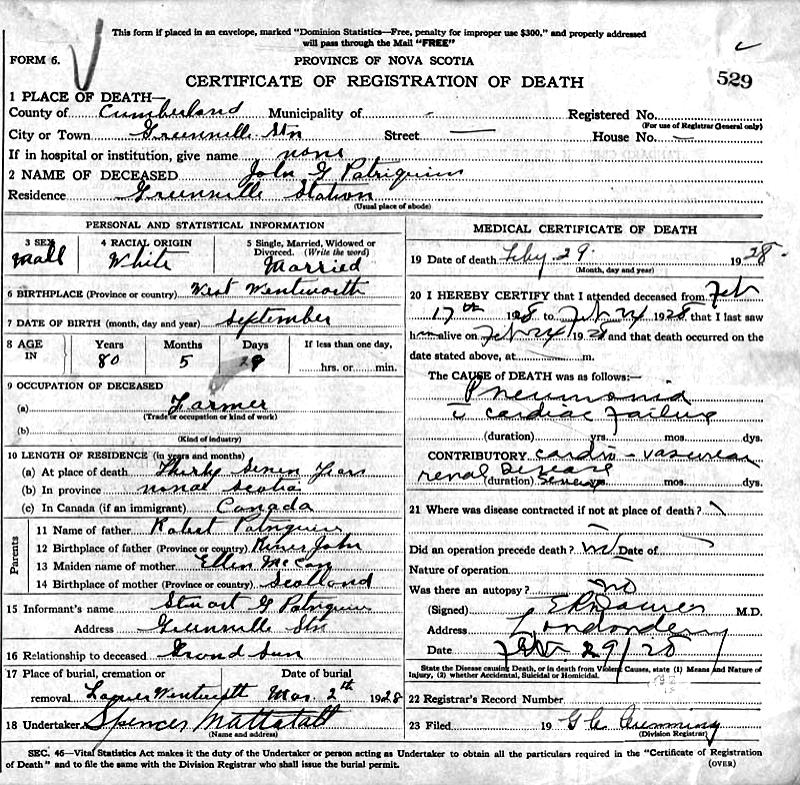 This form if placed in an envelope, marked "Dominion Statistics—Free, penalty for improper use $300," and properly addressed
will pass through the Mail "FREE"
FORM 6.
PROVINCE OF NOVA SCOTIA
CERTIFICATE OF REGISTRATION OF DEATH
529
1 PLACE OF DEATH—
County of Cumberland Municipality of - Registered No.
(For use of Registrar General only)
City or Town Greenville Stn Street — House No. —
If in hospital or institution, give name none
2 NAME OF DECEASED John G Patriquin
Residence Greenville Station
(Usual place of abode)
PERSONAL AND STATISTICAL INFORMATION
3 SEX Male
4 RACIAL ORIGIN White
5 Single, Married, Widowed or Divorced. (Write the word) Married
6 BIRTHPLACE (Province or country) West Wentworth
7 DATE OF BIRTH (month, day and year) September
8 AGE IN Years 80 Months 5 Days 29 If less than one day, hrs. or min.
9 OCCUPATION OF DECEASED
(a) Farmer
(Trade or occupation or kind of work)
(b)
(Kind of industry)
10 LENGTH OF RESIDENCE (in years and months)
(a) At place of death Thirty Seven Years
(b) In province nova Scotia
(c) In Canada (if an immigrant) Canada
Parents
11 Name of father Robert Patriquin
12 Birthplace of father (Province or country) River John
13 Maiden name of mother Ellen
14 Birthplace of mother (Province or country) Scotland
15 Informant's name Stuart G Patriquin
Address Greenville Stn
16 Relationship to deceased Grand Son
17 Place of burial, cremation or removal Wentworth
Date of burial Mar. 2th 1928
18 Undertaker Spencer Mattatall
(Name and address)
MEDICAL CERTIFICATE OF DEATH
19 Date of death Feby 29. 1928.
(Month, day and year)
20 I HEREBY CERTIFY that I attended deceased from Feb
17th 1928 to Feb 24 1928 that I last saw
him alive on Feb 24 1928 and that death occurred on the
date stated above, at m.
The CAUSE of DEATH was as follows:—
Pneumonia
c cardiac failure
(duration) yrs. mos. dys.
CONTRIBUTORY cardio-vascular
renal disease
(duration) yrs. mos. dys.
21 Where was disease contracted if not at place of death?
Did an operation precede death? no Date of
Nature of operation
Was there an autopsy? no
(Signed) M.D.
Address Londonderry
Date Feb 29/28
State the Disease causing Death, or in death from Violent Causes, state (1) Means and Nature of
Injury, (2) whether Accidental, Suicidal or Homicidal.
22 Registrar's Record Number
23 Filed 19 G C Cumming
(Division Registrar)
SEC. 46—Vital Statistics Act makes it the duty of the Undertaker or person acting as Undertaker to obtain all the particulars required in the "Certificate of Registration
of Death" and to file the same with the Division Registrar who shall issue the burial permit.
(OVER)